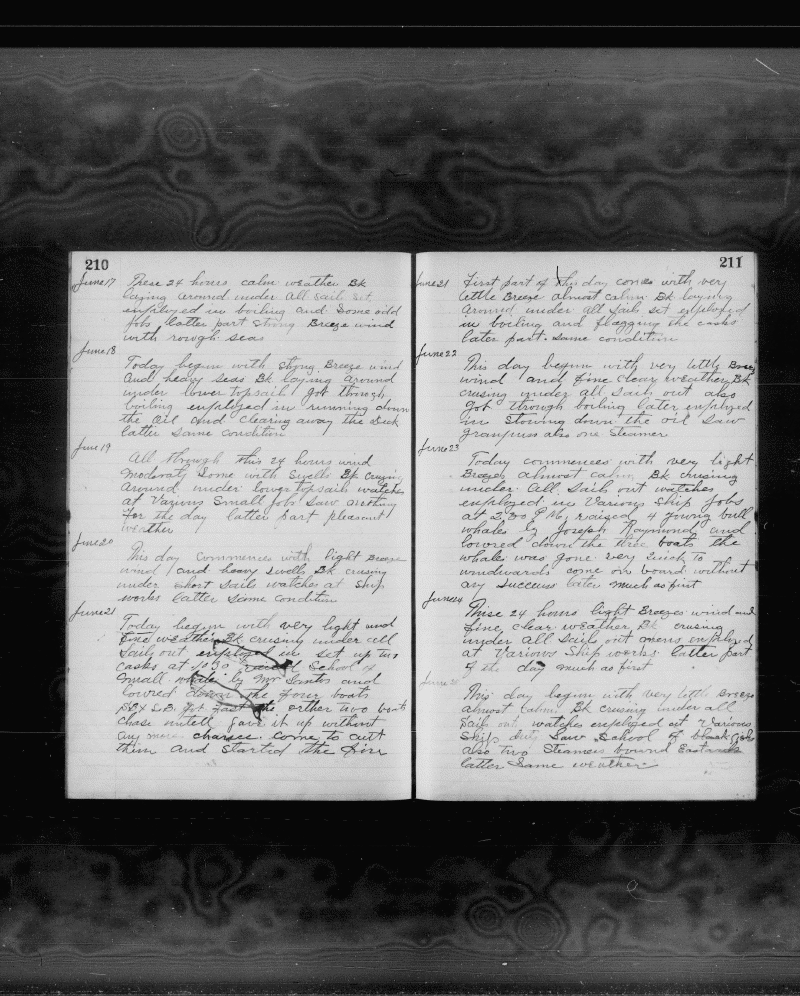 210
June 17 These 24 hours calm weather Bk
laying around under all sail set
employed in boiling and Some odd
Jobs latter part Strong Breeze wind
with rough seas
June 18
Today begun with strong Breeze wind
And heavy seas Bk laying around
under lower topsail got through
boiling employed in running down
the Oil and clearing away the Deck
latter Same condition
June 19
All through this 24 hours wind
moderate Some with Swells Bk
Around under lower topsails watches
at Various Small Jobs Saw nothing
For the day latter part pleasant
weather
June 20
This day commences with light Breeze
wind and heavy Swells Bk crusing
under Short Sails watches at Ship
works latter Same condition
June 21
Today begun with very light wind
Fine weather Bk crusing under all
Sails out employed in set up two
casks at 10.30 raised School of
small whale by Mr Santos and
lowred down the Four boats
S.B. got Fast the orther two boats
chase untell gave it up without
any more charsee. come to cutt
them and started the Fire
211
June 21 First part of this day comes with very
lettle Breeze almost calm Bk laying
Around under All Sails set employed
in boiling and flagging the casks
later part. Same condition
June 22
This day begun with very lettle Breeze
wind and Fine clear weather Bk
crusing under all Sails out also
got through boiling later employed
in Stowing down the oil Saw
grampuss also one Steamer
June 23
Today commences with very light
Breeze almost calm Bk crusing
under All Sails out watches
employed in Various Ship Jobs
at P.M. raised 4 going bull
whales by Joseph Raymond and
lowred down the three boats the
whales was gone very quick to
windwards come on board without
any Success later much as first
June 24
These 24 hours light Breezes wind and
Fine clear weather Bk crusing
under all Sails out mens employed
at Various Ship works latter part
of the day much as first
June
This day begun with very lettle Breeze
almost Calm Bk crusing under all
Sails out watches employed at Various
Ship duty Saw School of black
also two Steamers bound Eastwards
latter Same weather